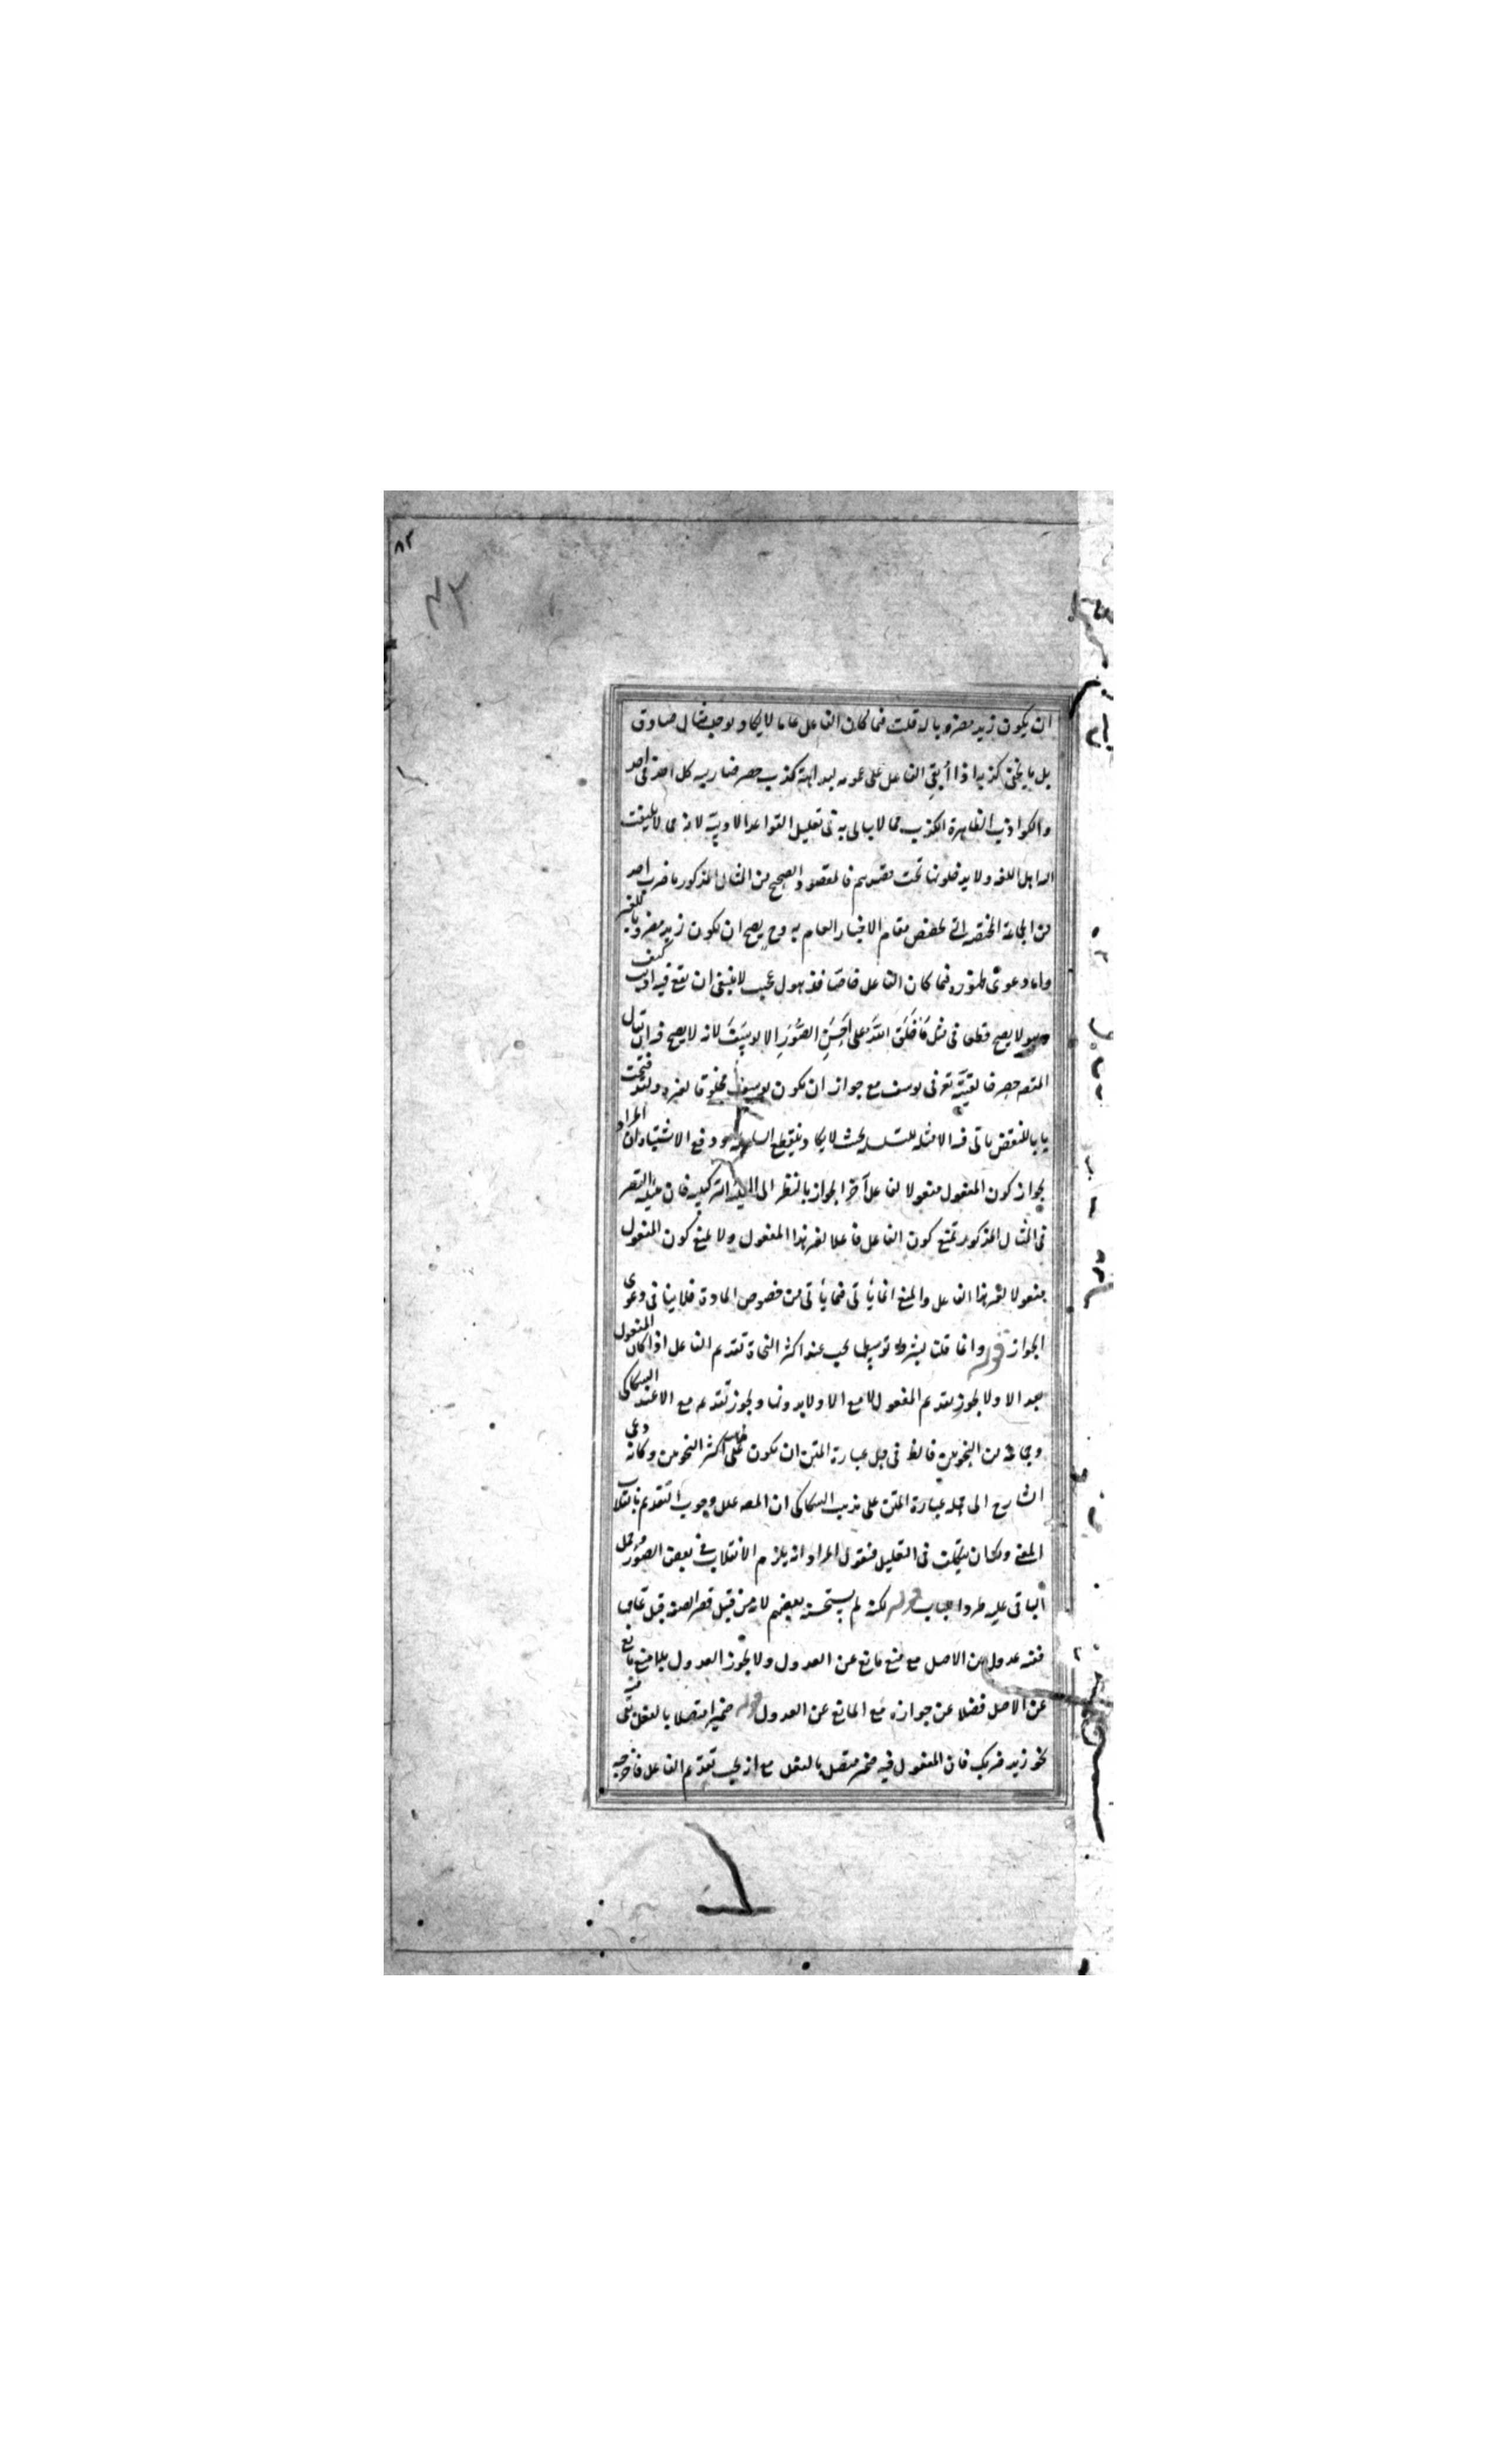 ٨٢
٤٢
ان يكون زيد مضروبا له قلت فيما كان الفاعل عاما لا يكاد يوجد مثال صادق
بل ما يخفى كذبه اذا أبقى الفاعل على عمومه لبداهة كذب حصر ضاربية كل احد في احد
والكواذب الظاهرة الكذب مما لا يبالى به في تعليل القواعد الادبية لانه مما لا يلتفت
اليه اهل اللغة ولا يدخلونها تحت قصدهم فالمقصود الصحيح من المثال المذكور ما ضرب احد
من الجماعة المختصة التي تخصص مقام الاخبار العام به وح يصح ان يكون زيد مضروبا لغير
واما دعوى ظهوره فيما كان الفاعل خاصا فذهول عجيب لا ينبغي ان يقع فيه اديب كيف
وهو لا يصح قطعا في مثل ما خلق الله على احسن الصور الا يوسف لانه لا يصح فيه ان يقال
المقصد حصر خالقيته تعالى في يوسف مع جواز ان يكون يوسف مخلوقا لغيره ولقد فتحت
بابا للنقض ياتى فيه الامثلة للتسلسل بحيث لا يكاد ينقطع السلسلة ودفع الاشتباه ان المراد
بجواز كون المفعول مفعولا لفاعل آخر الجواز بالنظر الى الهيئة التركيبية فان هيئة القصر
في المثال المذكور تمنع كون الفاعل فاعلا لغير هذا المفعول ولا تمنع كون المفعول
مفعولا لغير هذا الفاعل والمنع انما يأتى فيما يأتى من خصوص المادة فلا ينافى دعوى
الجواز قوله وانما قلت بشرط توسطها يجب عند اكثر النحاة تقديم الفاعل اذا كان المفعول
بعد الا ولا يجوز تقديم المفعول لا مع الا ولا بدونها ويجوز تقديمه مع الا عند السكاكى
وجماعة من النحويين فالظ في حل عبارة المتن ان يكون على اكثر النحويين وكانه دعى
الشارح الى حمله عبارة المتن على مذهب السكاكى ان المصه علل وجوب التقديم بانقلاب
المعنى ولكان يتكلف في التعليل فنقول المراد انه يلزم الانقلاب في بعض الصور وحمل
الباقى عليه طردا للباب قوله لكنه لم يستحسنه بعضهم لانه من قبيل قصر الصفة قبل تمامها
ففيه عدول عن الاصل مع منع مانع عن العدول ولا يجوز العدول بلا منع مانع
عن الاصل فضلا عن جوازه مع المانع عن العدول قوله ضميرا متصلا بالفعل
نحو زيد ضربك فان المفعول فيه ضمير متصل بالفعل مع انه يجب تقديم الفاعل فاخرجه